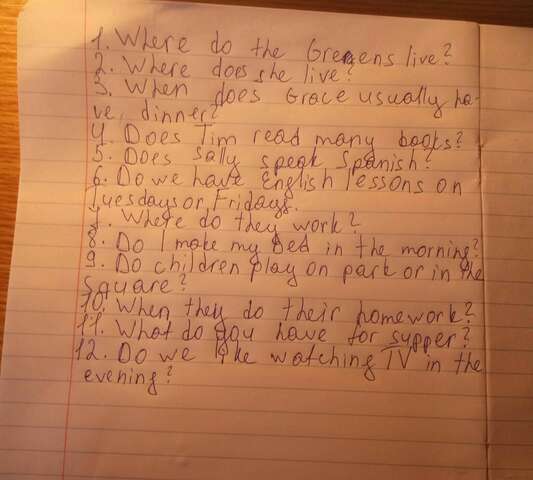 1. Where do the Greens live?
2. Where does she live?
3. When does Grace usually ha-
ve dinner?
4. Does Tim read many books?
5. Does Sally speak Spanish?
6. Do we have English lessons on
Tuesdays or Fridays.
7. Where do they work?
8. Do I make my bed in the morning?
9. Do children play on park or in the
square?
10. When they do their homework?
11. What do you have for sypper?
12. Do we like watching TV in the
evening?